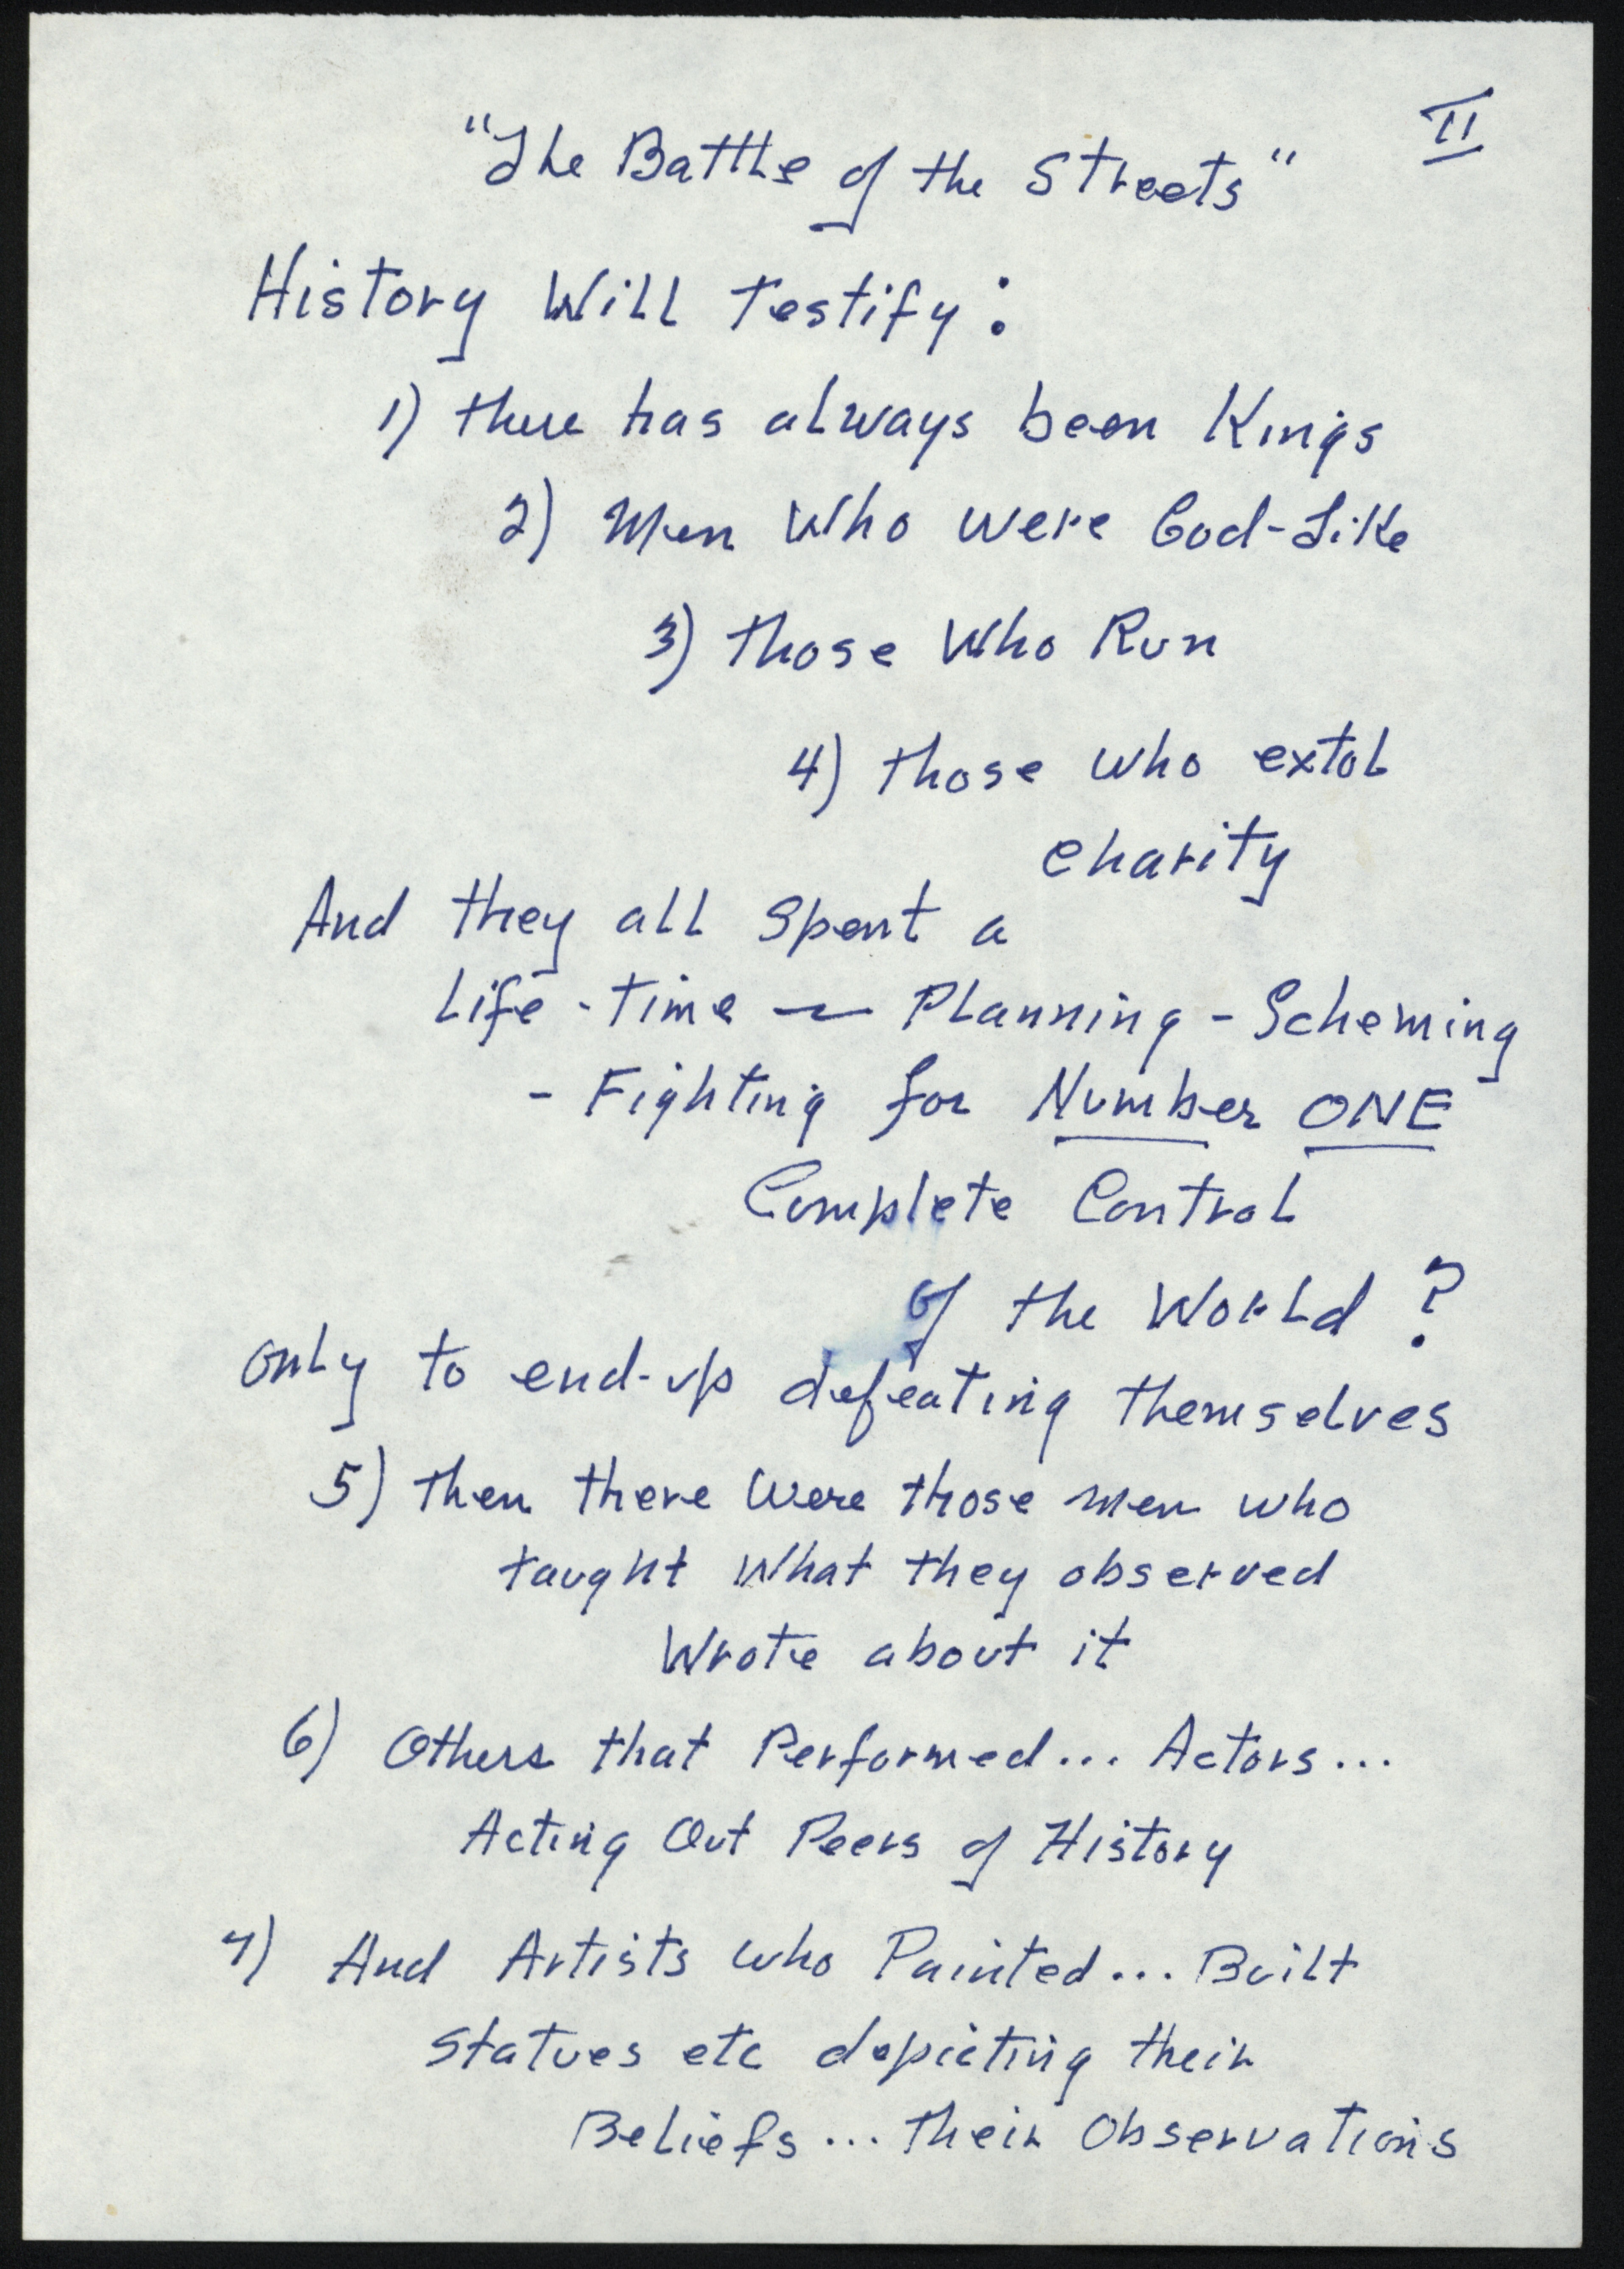 "The Battle of the Streets" II
History Will Testify:
1) there has always been Kings
2) Men Who were God-Like
3) Those Who Run
4) Those who extol
charity
And they all Spent a
Life-Time — Planning - Scheming
- Fighting for Number ONE
Complete Control
of the World?
only to end-up defeating themselves
5) Then there were those men who
taught What they observed
Wrote about it
6) Others that Performed... Actors...
Acting Out Peers of History
7) And Artists who Painted... Built
Statues etc depicting their
Beliefs... their Observations